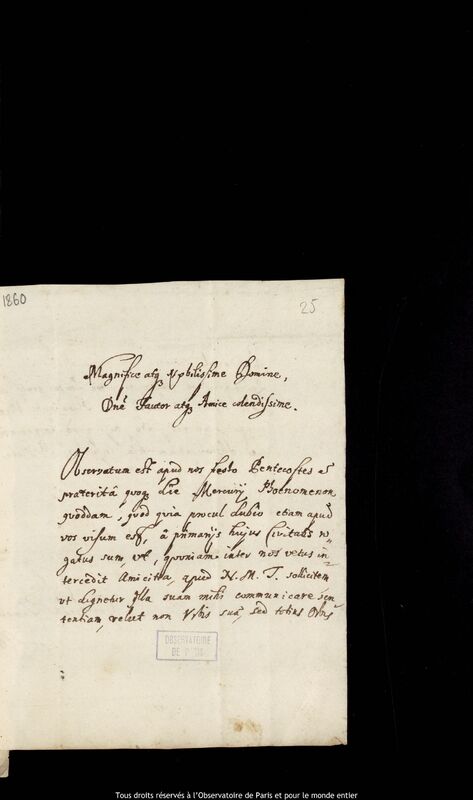 1860
25
Magnifice atq3 Nobilissime Domine,
Dne Fautor atq3 Amice colendissime.
Observatum est apud nos festo Pentecostes et
praeterita quoq3 die Mercurij Phoenomenon
quoddam, quod quia procul dubio etiam apud
vos visum est, à primarijs hujus Civitatis ro„
gatus sum, ut, quoniam inter nos vetus in„
tercedit Amicitia, apud N. M. T. sollicitem
ut dignetur illa suam mihi communicare sen
tentiam, velut non Urbis suae, sed totius Orbis
OBSERVATOIRE
DE PARIS
Tous droits réservés à l'Observatoire de Paris et pour le monde entier